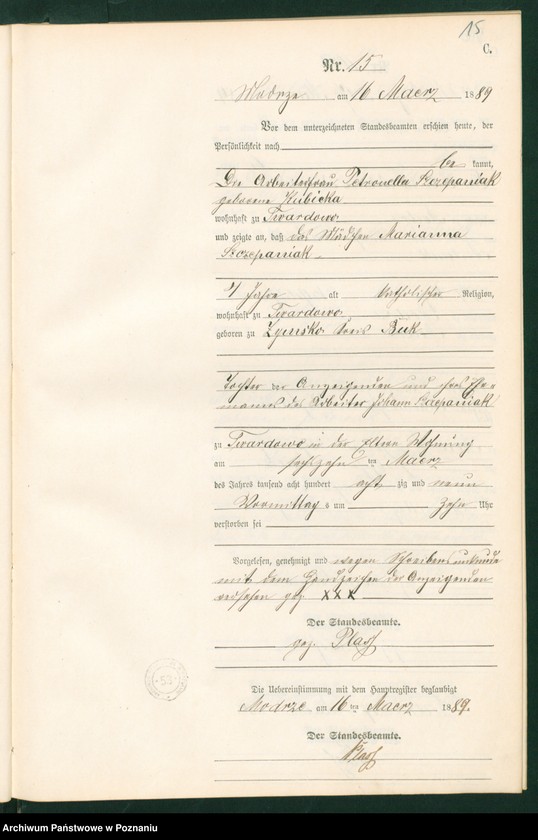 15
C.
Nr. 15
Modrze am 16 Maerz 1889
Vor dem unterzeichneten Standesbeamten erschien heute, der
Persönlichkeit nach
be kannt,
Die Arbeiterfrau Petronella Szczepaniak
geborene Kubicka
wohnhaft zu Twardowo
und zeigte an, daß das Mädchen Marianna
Szczepaniak
Jahre alt katholischer Religion,
wohnhaft zu Twardowo
geboren zu Kreis Buk
Tochter der Anzeigenden und ihres Ehe-
mannes des Arbeiter Johann Szczepaniak
zu Twardowo in der Eltern Wohnung
am sechszehn ten Maerz
des Jahres tausend acht hundert acht zig und neun
Vormittag s um Zehn Uhr
verstorben sei
Vorgelesen, genehmigt und wegen Schreibensunkunde
mit dem Handzeichen der Anzeigenden
versehen gez XXX
Der Standesbeamte.
gez.
Die Uebereinstimmung mit dem Hauptregister beglaubigt
Modrze am 16 ten Maerz 1889.
Der Standesbeamte.
53
Archiwum Państwowe w Poznaniu